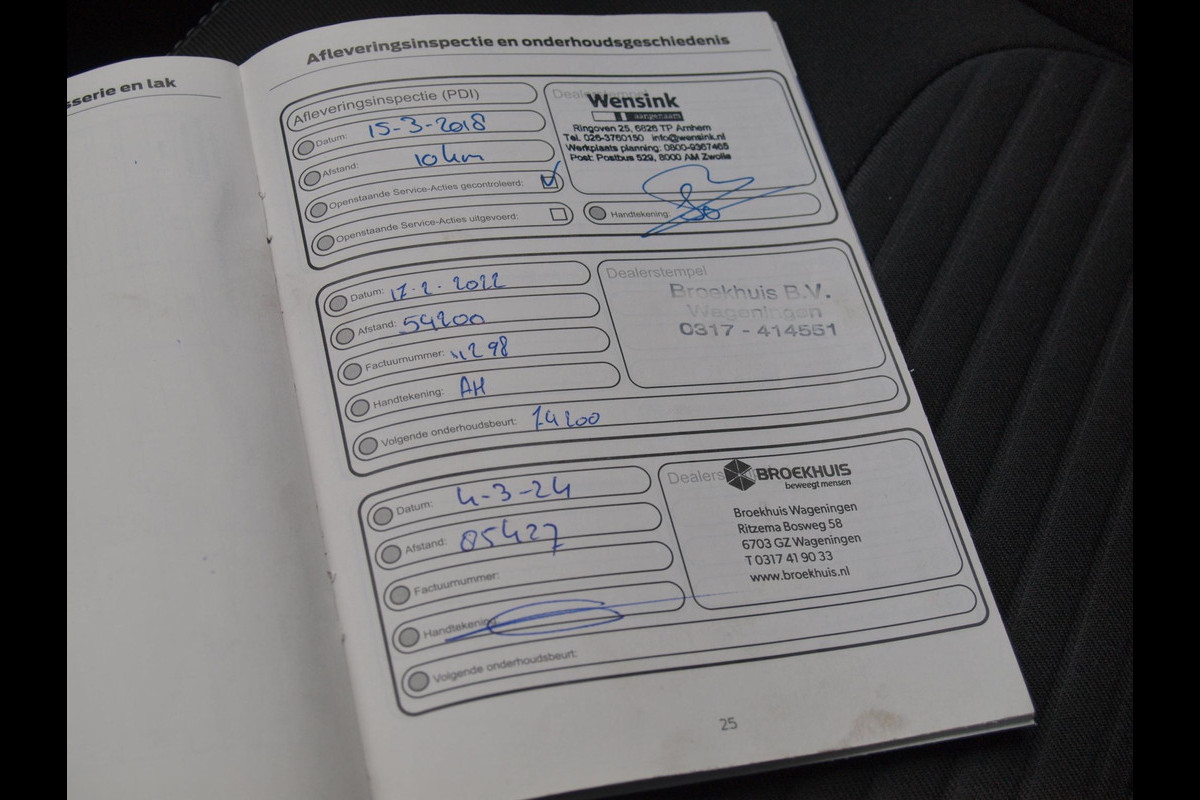 sserie en lak
Afleveringsinspectie en onderhoudsgeschiedenis
Afleveringsinspectie (PDI)
Datum: 15-3-2018
Afstand: 10 km
Openstaande Service-Acties gecontroleerd:
Openstaande Service-Acties uitgevoerd:
Dealerstempel
Wensink
aangenaam
Ringoven 25, 6826 TP Arnhem
Tel. 026-3760150 info@wensink.nl
Werkplaats planning: 0800-9367465
Post: Postbus 529, 8000 AM Zwolle
Handtekening:
Datum: 17-2-2022
Afstand: 54200
Factuurnummer: 298
Handtekening: AH
Volgende onderhoudsbeurt: 74200
Dealerstempel
Broekhuis B.V.
Wageningen
0317 - 414551
Datum: 4-3-24
Afstand: 85427
Factuurnummer:
Handtekening
Volgende onderhoudsbeurt:
Dealers
BROEKHUIS
beweegt mensen
Broekhuis Wageningen
Ritzema Bosweg 58
6703 GZ Wageningen
T 0317 41 90 33
www.broekhuis.nl
25